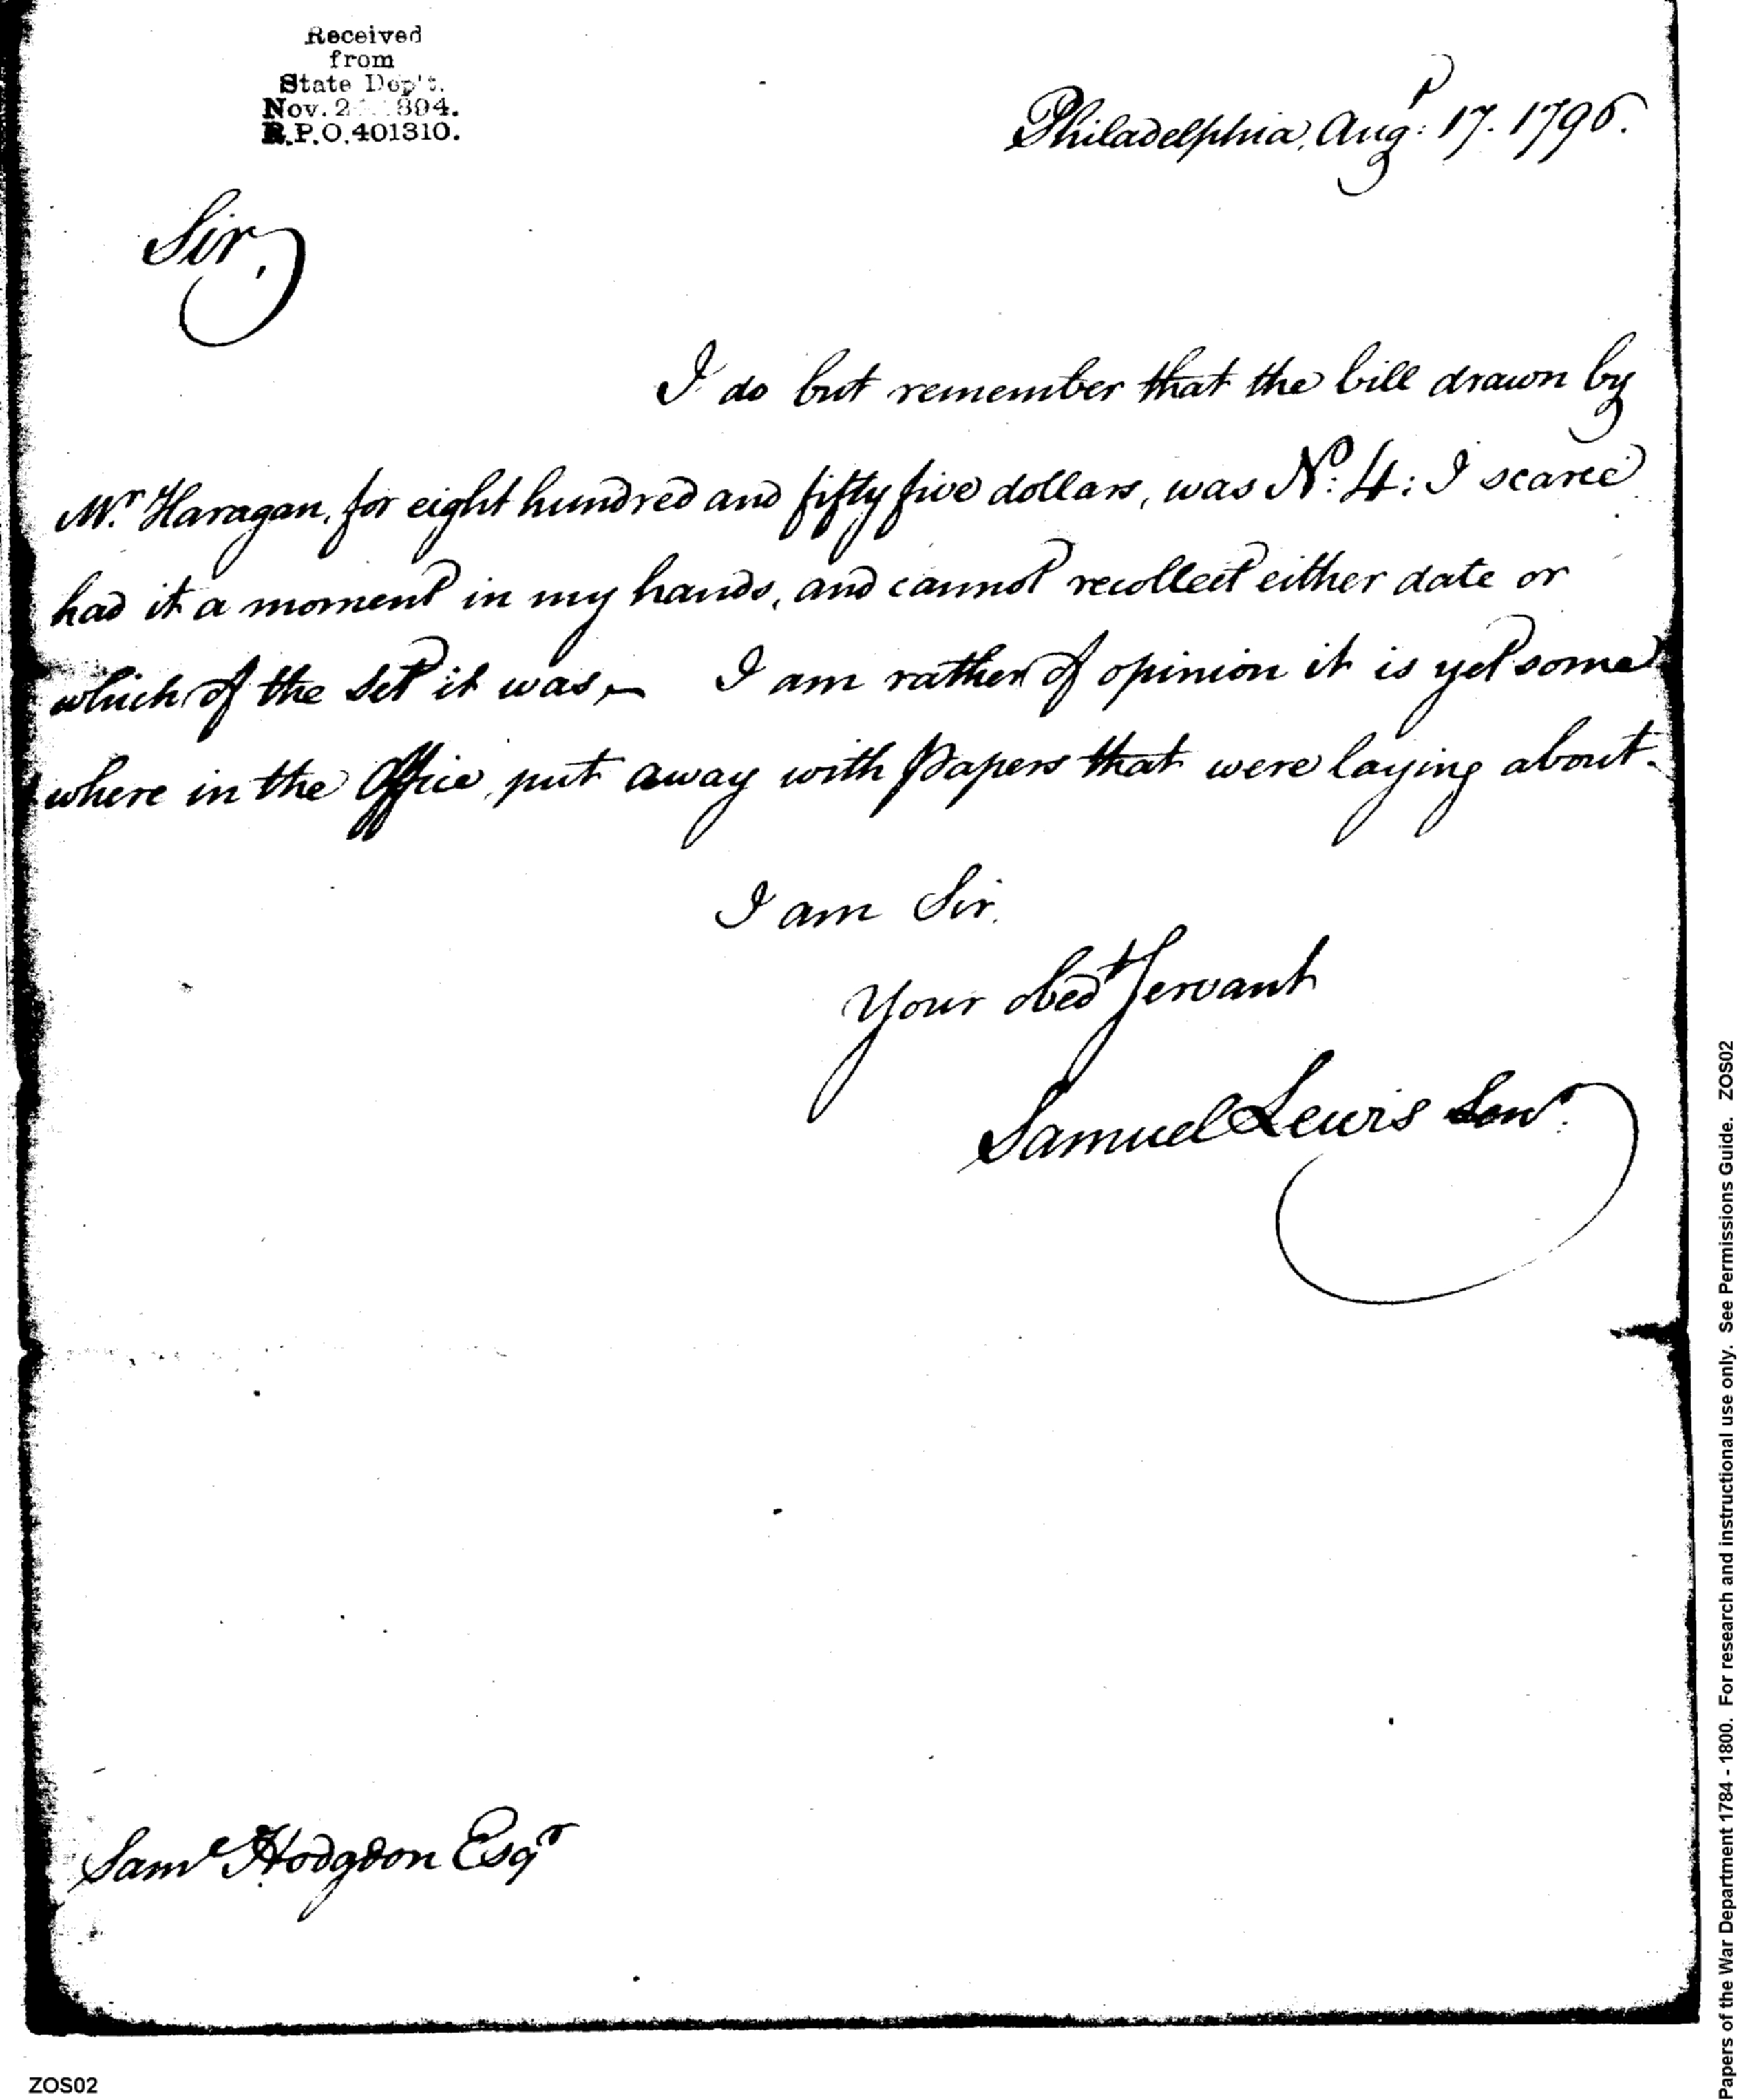 Received
from
State Dep't.
Nov. 2 894.
R.P.O. 401310.
Philadelphia, Augt: 17. 1796.
Sir,
I do but remember that the bill drawn by
Mr. Haragan, for eight hundred and fifty five dollars, was No: 4: I scarce
had it a moment in my hands, and cannot recollect either date or
which of the set it was,— I am rather of opinion it is yet some
where in the Office, put away with Papers that were laying about.
I am Sir.
Your obedt Servant
Samuel Lewis Senr:
Saml Hodgdon Esqr
ZOS02
Papers of the War Department 1784 - 1800. For research and instructional use only. See Permissions Guide. ZOS02